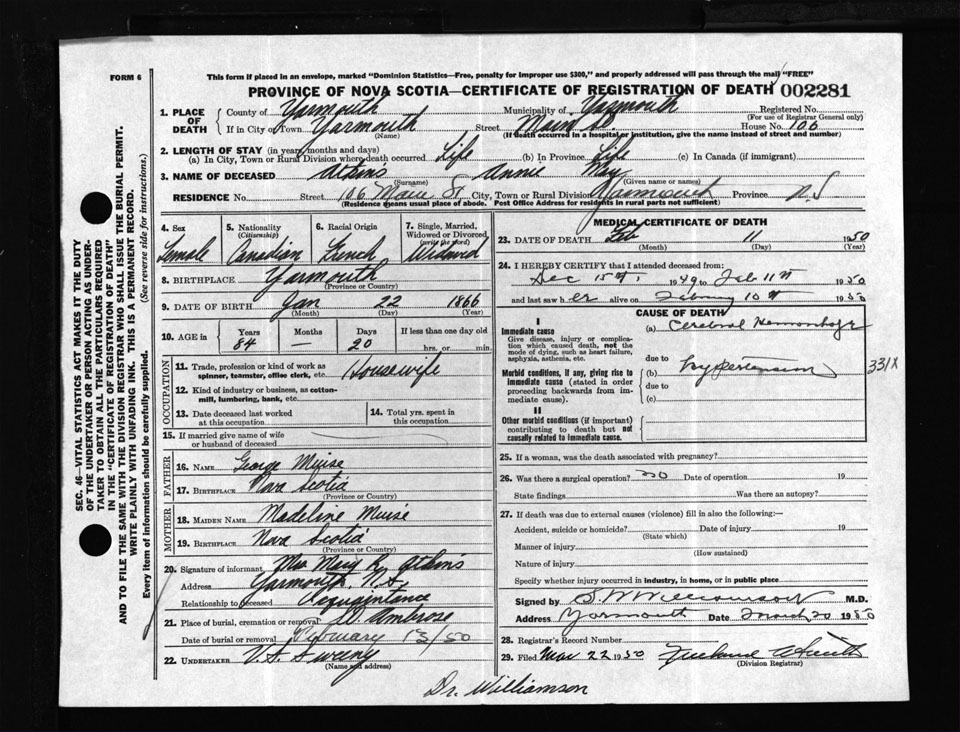 FORM 6
This form if placed in an envelope, marked "Dominion Statistics—Free, penalty for improper use $300," and properly addressed will pass through the mail "FREE"
PROVINCE OF NOVA SCOTIA—CERTIFICATE OF REGISTRATION OF DEATH 002281
1. PLACE OF DEATH
County of Yarmouth Municipality of Yarmouth Registered No.
(For use of Registrar General only)
If in City or Town Yarmouth Street Main St. House No. 106
(Name) (If death occurred in a hospital or institution, give the name instead of street and number)
2. LENGTH OF STAY (in years, months and days)
(a) In City, Town or Rural Division where death occurred Life (b) In Province Life (c) In Canada (if immigrant)
3. NAME OF DECEASED Atkins Annie May
(Surname) (Given name or names)
RESIDENCE No. Street 106 Main St. City, Town or Rural Division Yarmouth Province N.S
(Residence means usual place of abode. Post Office Address for residents in rural parts not sufficient)
4. Sex
Female
5. Nationality
(Citizenship)
Canadian
6. Racial Origin
French
7. Single, Married, Widowed or Divorced
(write the word)
Widowed
8. BIRTHPLACE Yarmouth
(Province or Country)
9. DATE OF BIRTH Jan 22 1866
(Month) (Day) (Year)
10. AGE in Years Months Days If less than one day old
84 — 20 hrs. or min.
OCCUPATION
11. Trade, profession or kind of work as spinner, teamster, office clerk, etc. Housewife
12. Kind of industry or business, as cotton-mill, lumbering, bank, etc.
13. Date deceased last worked at this occupation
14. Total yrs. spent in this occupation
15. If married give name of wife or husband of deceased
FATHER
16. NAME George Muise
17. BIRTHPLACE Nova Scotia
(Province or Country)
MOTHER
18. MAIDEN NAME Madeline Muise
19. BIRTHPLACE Nova Scotia
(Province or Country)
20. Signature of informant Mrs Mary R. Atkins
Address Yarmouth. N.S.
Relationship to deceased Acquaintance
21. Place of burial, cremation or removal Ambrose
Date of burial or removal February 13/50
22. UNDERTAKER V.S. Sweeny
(Name and address)
MEDICAL CERTIFICATE OF DEATH
23. DATE OF DEATH Feb 11 1950
(Month) (Day) (Year)
24. I HEREBY CERTIFY that I attended deceased from:
Dec 15th 1949 to Feb 11th 1950
and last saw her alive on February 10th 1950
CAUSE OF DEATH
I
Immediate cause
Give disease, injury or complication which caused death, not the mode of dying, such as heart failure, asphyxia, asthenia, etc.
(a) Cerebral Hemorrhage
due to
Morbid conditions, if any, giving rise to immediate cause (stated in order proceeding backwards from immediate cause).
(b) hypertension
due to
(c)
331X
II
Other morbid conditions (if important) contributing to death but not causally related to immediate cause.
25. If a woman, was the death associated with pregnancy?
26. Was there a surgical operation? no Date of operation 19
State findings Was there an autopsy?
27. If death was due to external causes (violence) fill in also the following:—
Accident, suicide or homicide? Date of injury 19
(State which)
Manner of injury
(How sustained)
Nature of injury
Specify whether injury occurred in industry, in home, or in public place
Signed by S. W. Williamson M.D.
Address Yarmouth Date March 20 1950
28. Registrar's Record Number
29. Filed Mar 22 1950
(Division Registrar)
Dr. Williamson
SEC. 46—VITAL STATISTICS ACT MAKES IT THE DUTY
OF THE UNDERTAKER OR PERSON ACTING AS UNDER-
TAKER TO OBTAIN ALL THE PARTICULARS REQUIRED
IN THE "CERTIFICATE OF REGISTRATION OF DEATH"
AND TO FILE THE SAME WITH THE DIVISION REGISTRAR WHO SHALL ISSUE THE BURIAL PERMIT.
WRITE PLAINLY WITH UNFADING INK. THIS IS A PERMANENT RECORD.
Every item of information should be carefully supplied. (See reverse side for instructions.)